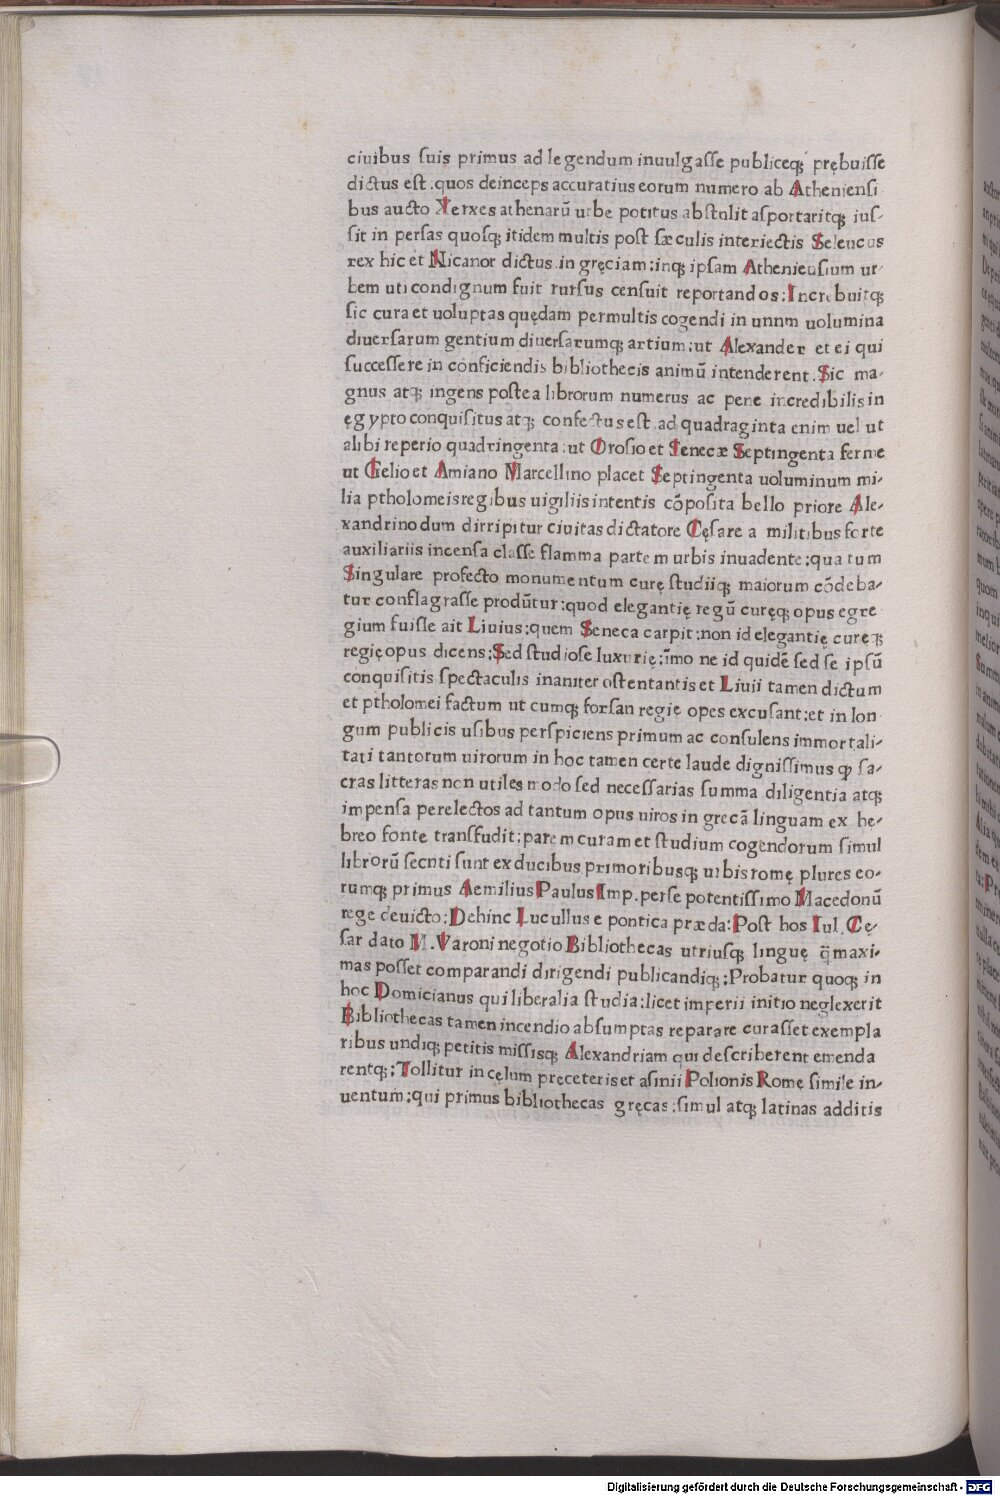 ciuibus ſuis primus ad legendum inuulgaſſe publiceqꝫ prębuiſſe
dictus eſt .quos deinceps accuratius eorum numero ab Athenienſi
bus aucto Xerxes athenarū urbe potitus abſtulit aſportaritqꝫ iuſ-
ſit in perſas quoſqꝫ itidem multis poſt ſæculis interiectis Seleucus
rex hic et Nicanor dictus in gręciam:inqꝫ ipſam Athenieuſium ur-
bem uti condignum fuit rurſus cenſuit reportandos:Increbuitqꝫ
ſic cura et uoluptas quędam permultis cogendi in unnm uolumina
diuerſarum gentium diuerſarumqꝫ artium:ut Alexander et ei qui
ſucceſſere in conficiendis bibliothecis animū intenderent. Sic ma-
gnus atqꝫ ingens poſtea librorum numerus ac pene incredibilis in
ęgypto conquiſitus atqꝫ confectus eſt .ad quadraginta enim uel ut
alibi reperio quadringenta:ut Oroſio et Senecæ Septingenta ferme
ut Gelio et Amiano Marcellino placet Septingenta uoluminum mi-
lia ptholomeis regibus uigiliis intentis cōpoſita bello priore Ale-
xandrino dum dirripitur ciuitas dictatore Cęſare a militibus forte
auxiliariis incenſa claſſe flamma partem urbis inuadente:qua tum
Singulare profecto monumentum curę ſtudiiqꝫ maiorum cōdeba-
tur conflagraſſe produ͞tur:quod elegantię regū curęqꝫ opus egre
gium fuiſſe ait Liuius:quem Seneca carpit:non id elegantię curęqꝫ
regię opus dicens:Sed ſtudioſe luxurię:īmo ne id quidē ſed ſe ipſū
conquiſitis ſpectaculis inaniter oſtentantis et Liuii tamen dictum
et ptholomei factum ut cumqꝫ forſan regię opes excuſant:et in lon
gum publicis uſibus perſpiciens primum ac conſulens immortali-
tati tantorum uirorum in hoc tamen certe laude digniſſimus ꝙ ſa-
cras litteras non utiles modo ſed neceſſarias ſumma diligentia atqꝫ
impenſa perelectos ad tantum opus uiros in grecā linguam ex he-
breo fonte transfudit:parem curam et ſtudium cogendorum ſimul
librorū ſecuti ſunt ex ducibus primoribusqꝫ urbis romę plures eo-
rumqꝫ primus Aemilius Paulus Imp. perſe potentiſſimo Macedonū
rege deuicto:Dehinc Lucullus e pontica præda:Poſt hos Iul. Cę-
ſar dato M. Varoni negotio Bibliothecas utriuſqꝫ linguę q̄ maxi-
mas poſſet comparandi dirigendi publicandiqꝫ:Probatur quoqꝫ in
hoc Domicianus qui liberalia ſtudia:licet imperii initio neglexerit
Bibliothecas tamen incendio abſumptas reparare curaſſet exempla
ribus undiqꝫ petitis miſſisqꝫ Alexandriam qui deſcriberent emenda
rentqꝫ:Tollitur in cęlum pręceteris et aſinii Polionis Romę ſimile in-
uentum:qui primus bibliothecas gręcas:ſimul atqꝫ latinas additis
Digitalisierung gefördert durch die Deutsche Forschungsgemeinschaft - DFG